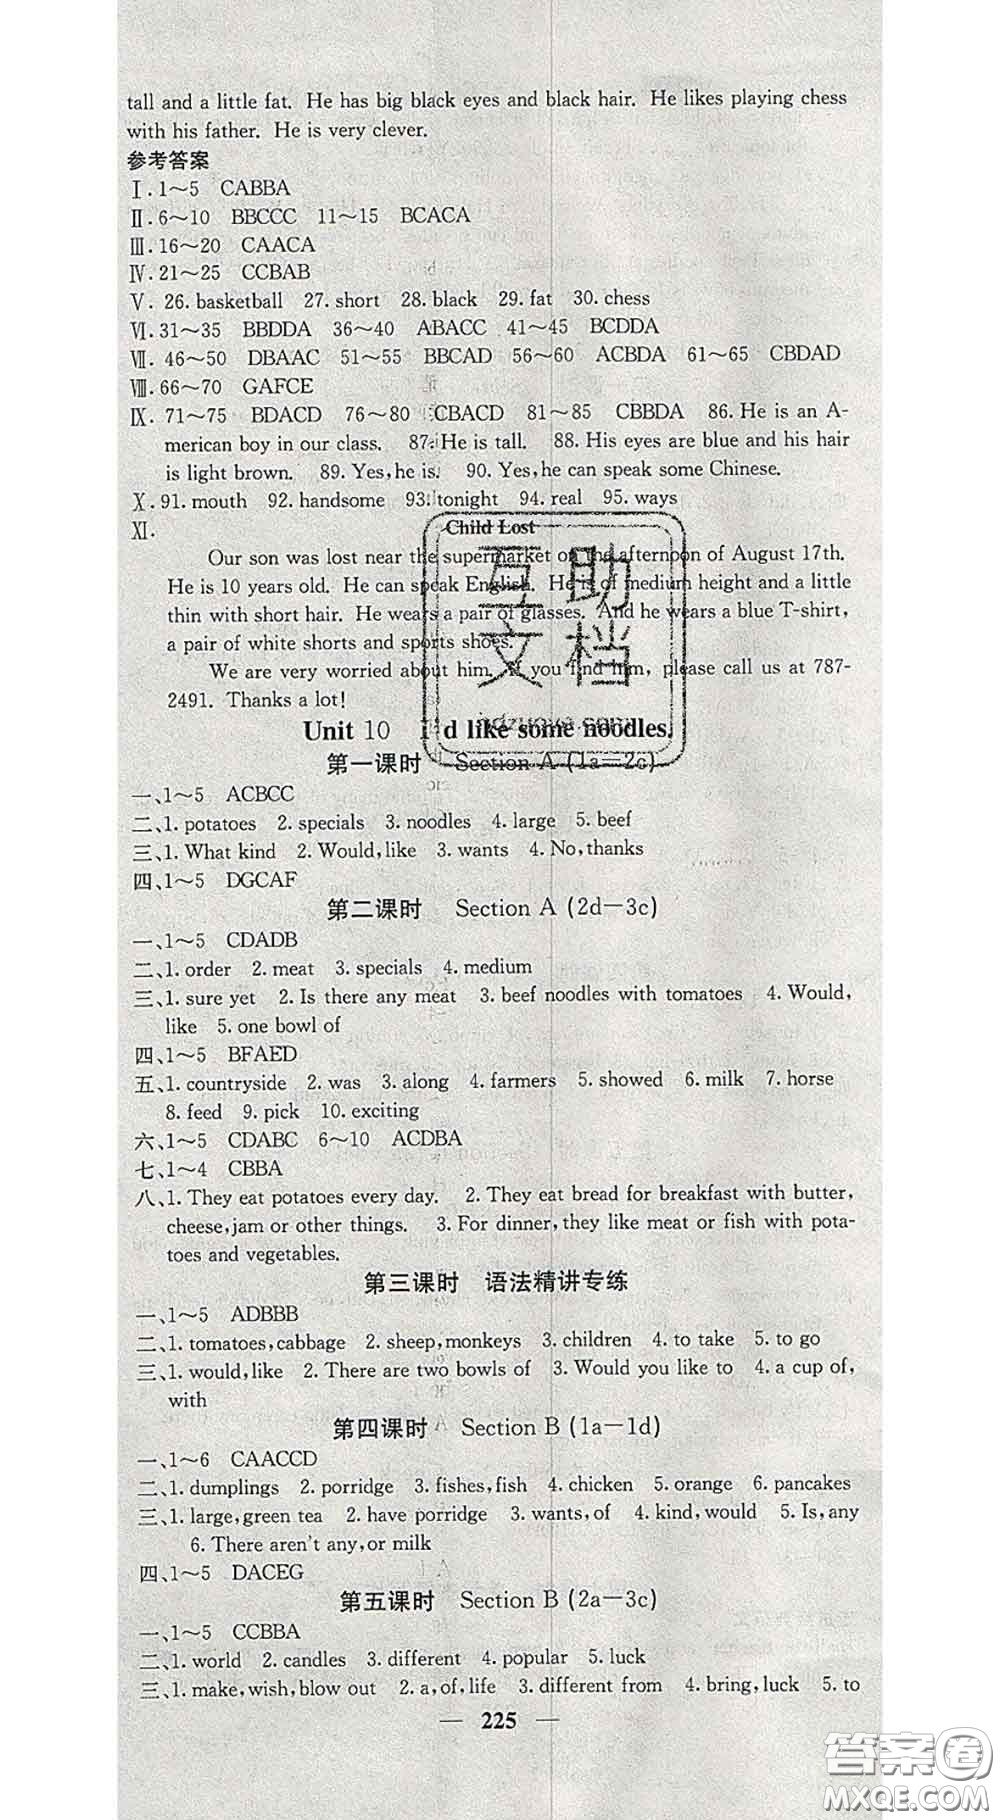 tall and a little fat. He has big black eyes and black hair. He likes playing chess
with his father. He is very clever.
参考答案
Ⅰ. 1～5 CABBA
Ⅱ. 6～10 BBCCC 11～15 BCACA
Ⅲ. 16～20 CAACA
Ⅳ. 21～25 CCBAB
Ⅴ. 26. basketball 27. short 28. black 29. fat 30. chess
Ⅵ. 31～35 BBDDA 36～40 ABACC 41～45 BCDDA
Ⅶ. 46～50 DBAAC 51～55 BBCAD 56～60 ACBDA 61～65 CBDAD
Ⅷ. 66～70 GAFCE
Ⅸ. 71～75 BDACD 76～80 CBACD 81～85 CBBDA 86. He is an A-
merican boy in our class. 87. He is tall. 88. His eyes are blue and his hair
is light brown. 89. Yes, he is. 90. Yes, he can speak some Chinese.
Ⅹ. 91. mouth 92. handsome 93. tonight 94. real 95. ways
Ⅺ.
Child Lost
Our son was lost near the supermarket on the afternoon of August 17th.
He is 10 years old. He can speak English. He is of medium height and a little
thin with short hair. He wears a pair of glasses. And he wears a blue T-shirt,
a pair of white shorts and sports shoes.
We are very worried about him. If you find him, please call us at 787-
2491. Thanks a lot!
互助
文档
Unit 10 I'd like some noodles.
第一课时 Section A (1a—2c)
一、1～5 ACBCC
二、1. potatoes 2. specials 3. noodles 4. large 5. beef
三、1. What kind 2. Would, like 3. wants 4. No, thanks
四、1～5 DGCAF
第二课时 Section A (2d—3c)
一、1～5 CDADB
二、1. order 2. meat 3. specials 4. medium
三、1. sure yet 2. Is there any meat 3. beef noodles with tomatoes 4. Would,
like 5. one bowl of
四、1～5 BFAED
五、1. countryside 2. was 3. along 4. farmers 5. showed 6. milk 7. horse
8. feed 9. pick 10. exciting
六、1～5 CDABC 6～10 ACDBA
七、1～4 CBBA
八、1. They eat potatoes every day. 2. They eat bread for breakfast with butter,
cheese, jam or other things. 3. For dinner, they like meat or fish with pota-
toes and vegetables.
第三课时 语法精讲专练
一、1～5 ADBBB
二、1. tomatoes, cabbage 2. sheep, monkeys 3. children 4. to take 5. to go
三、1. would, like 2. There are two bowls of 3. Would you like to 4. a cup of,
with
第四课时 Section B (1a—1d)
一、1～6 CAACCD
二、1. dumplings 2. porridge 3. fishes, fish 4. chicken 5. orange 6. pancakes
三、1. large, green tea 2. have porridge 3. wants, of 4. kind, would 5. Is, any
6. There aren't any, or milk
四、1～5 DACEG
第五课时 Section B (2a—3c)
一、1～5 CCBBA
二、1. world 2. candles 3. different 4. popular 5. luck
三、1. make, wish, blow out 2. a, of, life 3. different from 4. bring, luck 5. to
— 225 —
答案卷
MXQE.COM